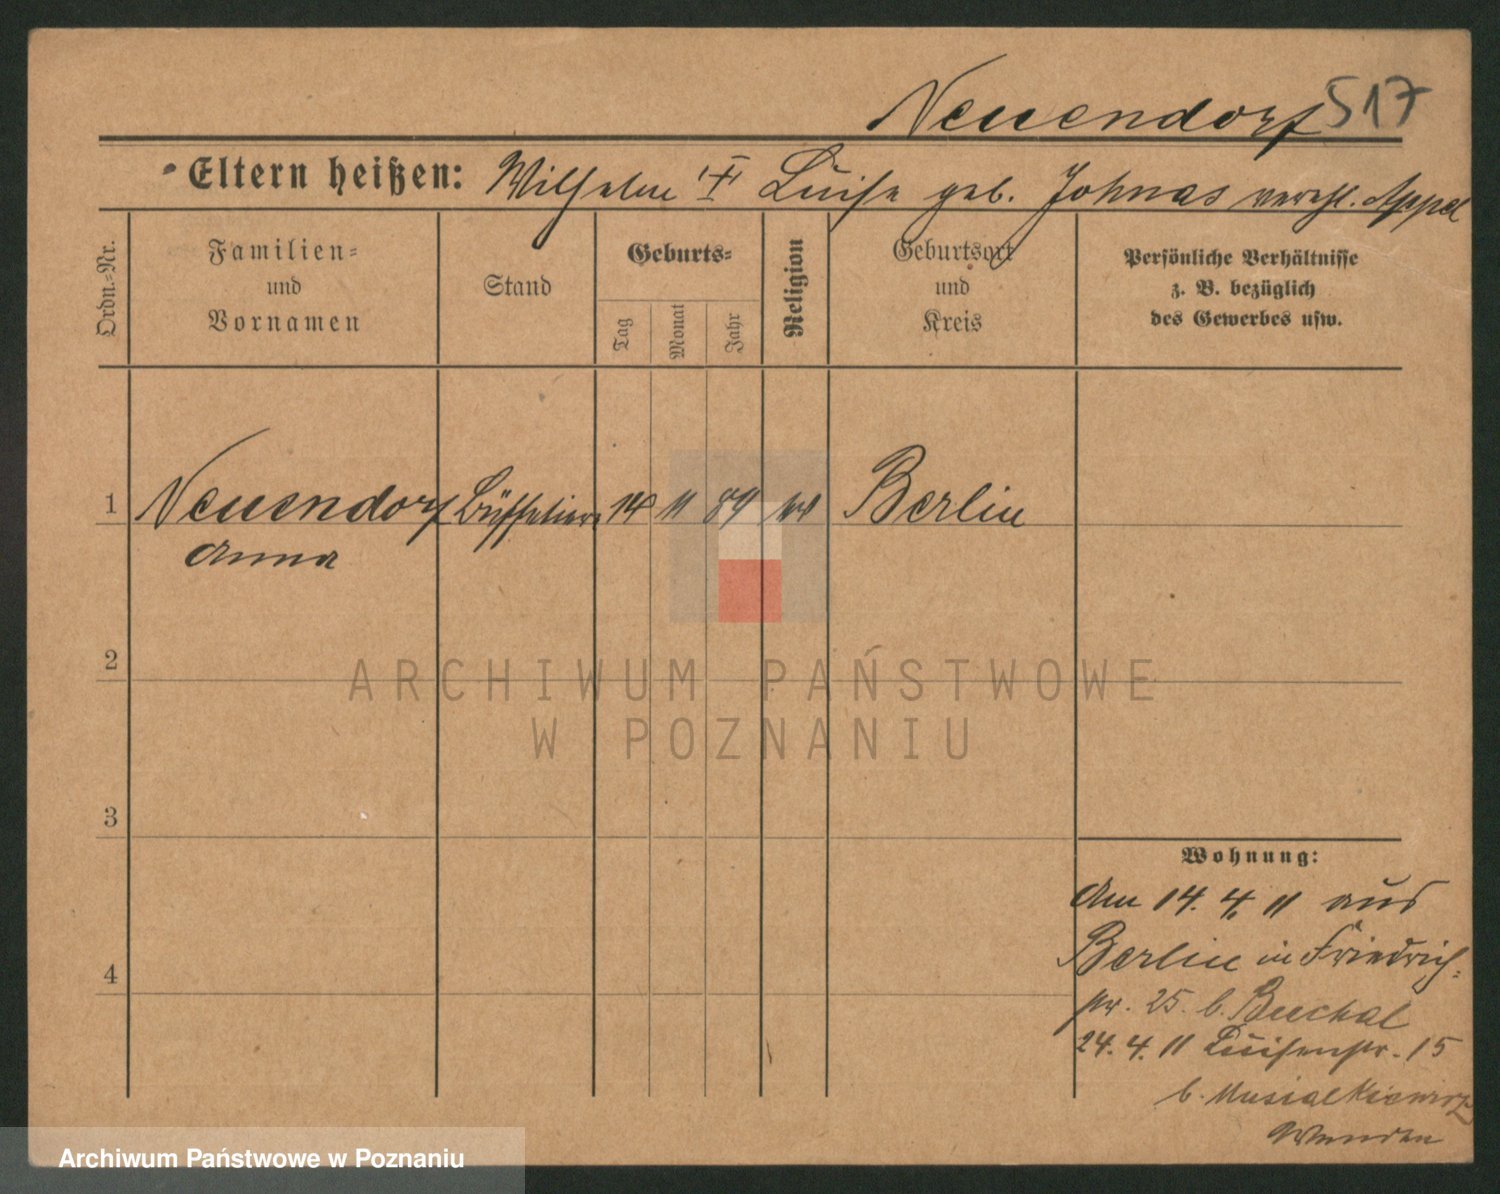 Neuendorf 517
Eltern heißen: Wilhelm † Luise geb. Johnas verehl. Appel
Ordn.-Nr.
Familien-
und
Vornamen
Stand
Geburts-
Tag
Monat
Jahr
Religion
Geburtsort
und
Kreis
Persönliche Verhältnisse
z. B. bezüglich
des Gewerbes usw.
1 Neuendorf 14 11 89 Berlin
Anna
2
3
4
Wohnung:
Am 14. 4. 11 aus
Berlin in Friedrich-
str. 25. b. Buchal
24. 4. 11 Luisenstr. 15
b. Musialkiewicz
Wenden
ARCHIWUM PAŃSTWOWE
W POZNANIU
Archiwum Państwowe w Poznaniu